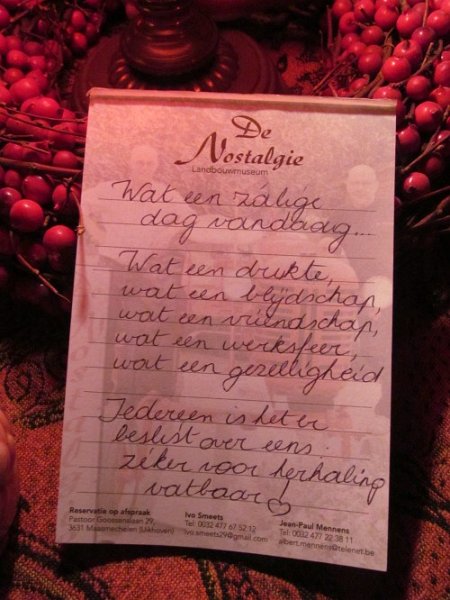 De
Nostalgie
Landbouwmuseum
Wat een zálige
dag vandaag...
Wat een drukte,
wat een blijdschap,
wat een vriendschap,
wat een werksfeer,
wat een gezelligheid
Iedereen is het er
beslist over eens:
zéker voor herhaling
vatbaar ♡
Reservatie op afspraak
Pastoor Goossenslaan 29
3631 Maasmechelen (Uikhoven)
Ivo Smeets
Tel: 0032 477 67 52 12
ivo.smeets29@gmail.com
Jean-Paul Mennens
Tel: 0032 477 22 38 11
albert.mennens@telenet.be